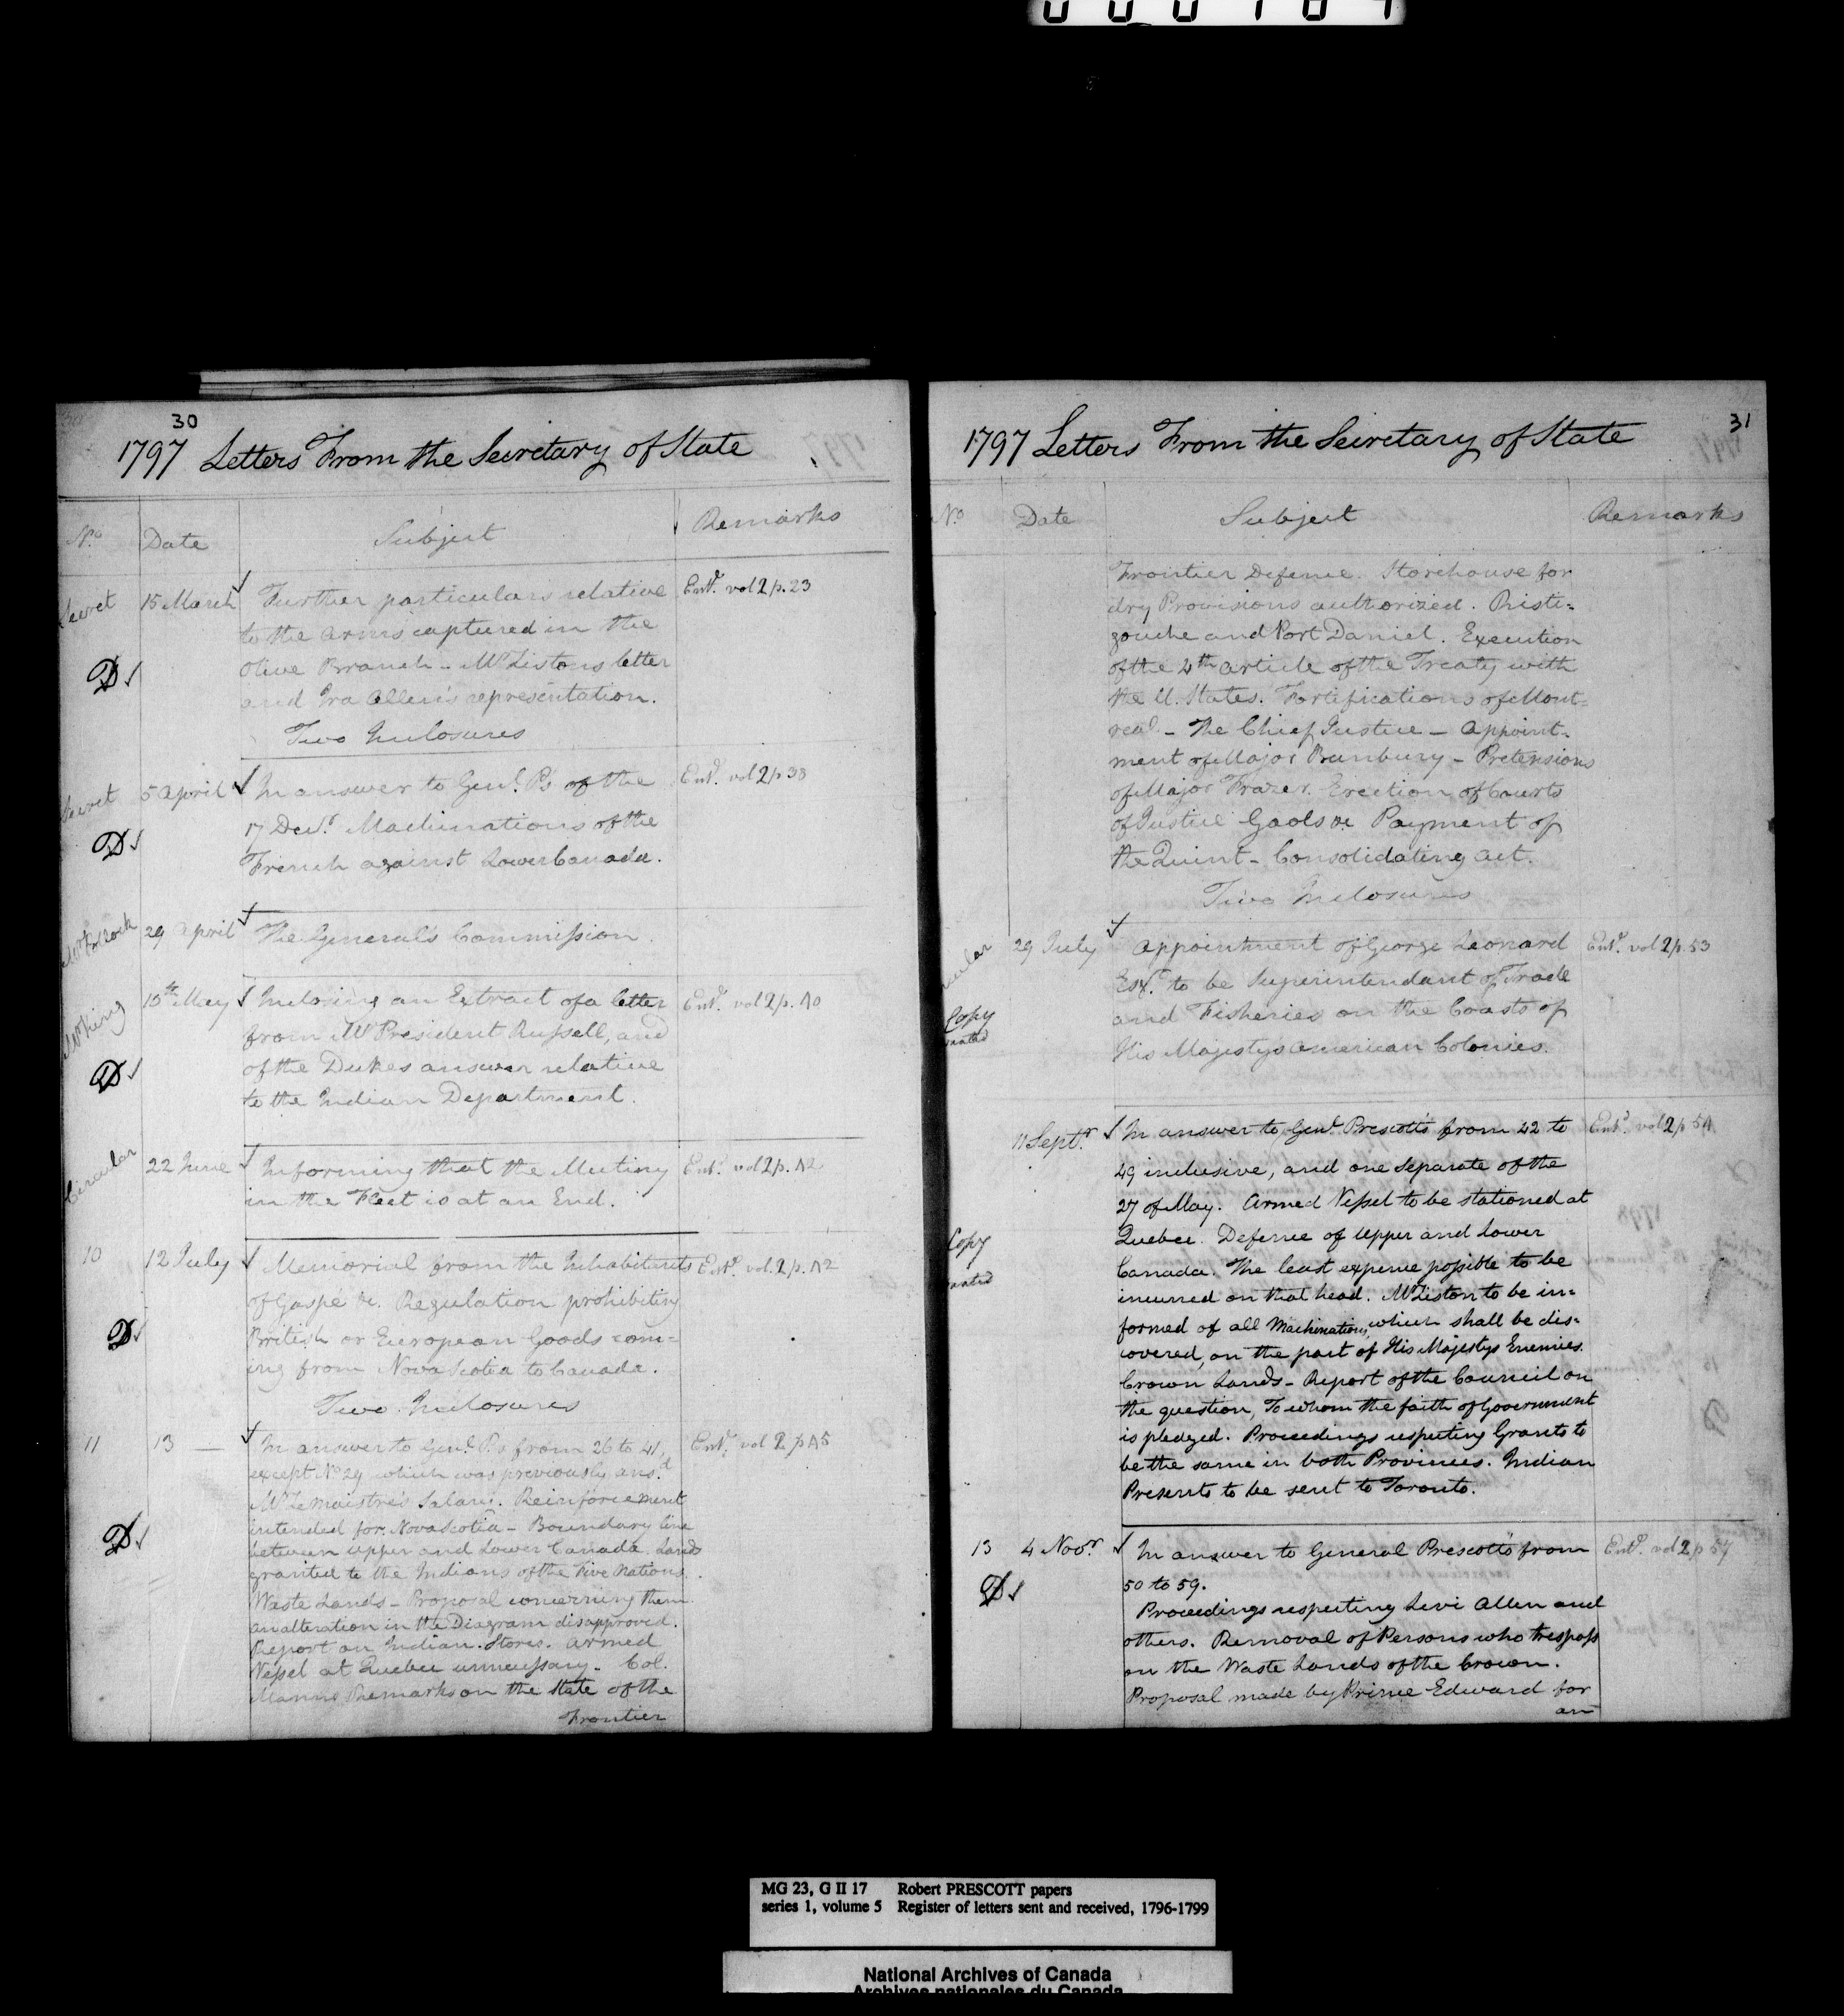 30
1797 Letters From the Secretary of State
No. Date Subject Remarks
Secret 15 March Further particulars relative Entd. vol 2 p. 23
to the Arms captured in the
Olive Branch - Mr Listons letter
and Ira Allen's representation.
Two Inclosures
Secret 5 April In answer to Genl. P's of the Entd. vol 2 p 38
17 Decr. Machinations of the
French against Lower Canada.
29 April The General's Commission.
Mr King 10th May Inclosing an Extract of a letter Entd. vol 2 p. 40
from Mr President Russell, and
of the Dukes answer relative
to the Indian Department.
Circular 22 June Informing that the Mutiny Entd. vol 2 p. 42
in the Fleet is at an End.
10 12 July Memorial from the Inhabitants Entd. vol. 2 p. 42
of Gaspé &c. Regulation prohibiting
British or European Goods com=
ing from Nova Scotia to Canada.
Two Inclosures
11 13 — In answer to Genl. P's from 26 to 41, Entd. vol 2 p 45
except No 29 which was previously ansd.
Mr Lemaistre's Salary. Reinforcement
intended for Nova Scotia - Boundary line
between Upper and Lower Canada. Lands
granted to the Indians of the Five Nations.
Waste Lands - Proposal concerning them
an alteration in the Diagram disapproved.
Report on Indian Stores. Armed
Vessel at Quebec unnecessary. Col.
Manns Remarks on the State of the
Frontier
31
1797 Letters From the Secretary of State
No. Date Subject Remarks
Frontier Defence. Storehouse for
dry Provisions authorized. Risti=
gouche and Port Daniel. Execution
of the 4th article of the Treaty with
the U. States. Fortifications of Mont=
real - The Chief Justice - Appoint=
ment of Major Bunbury - Pretensions
of Major Frazer. Erection of Courts
of Justice Gaols &c Payment of
the Quint - Consolidating Act.
Two Inclosures
29 July Appointment of George Leonard Entd. vol 2 p. 53
Esqr. to be Superintendant of Trade
Copy and Fisheries on the Coasts of
His Majesty's American Colonies.
11 Septr. In answer to Genl. Prescott's from 42 to Entd. vol 2 p 54
49 inclusive, and one separate of the
27 of May. Armed Vessel to be stationed at
Copy Quebec. Defence of Upper and Lower
Canada. The least expence possible to be
incurred on that head. Mr Liston to be in=
formed of all Machinations, which shall be dis=
covered, on the part of His Majestys Enemies.
Crown Lands - Report of the Council on
the question, To whom the faith of Government
is pledged. Proceedings respecting Grants to
be the same in both Provinces. Indian
Presents to be sent to Toronto.
13 4 Novr. In answer to General Prescott's from Entd. vol 2 p 57
50 to 59.
Proceedings respecting Levi Allen and
others. Removal of Persons who trespass
on the Waste Lands of the Crown.
Proposal made by Prince Edward for
an
MG 23, G II 17 Robert PRESCOTT papers
series 1, volume 5 Register of letters sent and received, 1796-1799
National Archives of Canada
Archives nationales du Canada